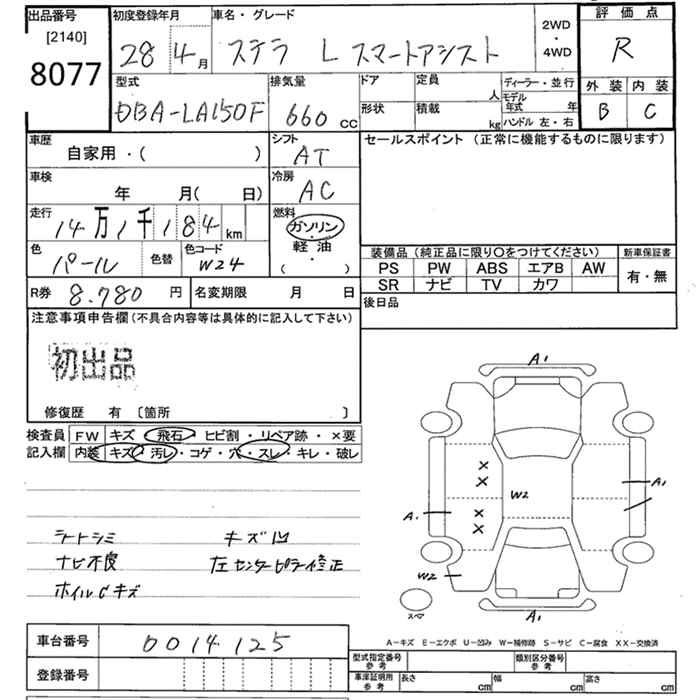 出品番号 [2140] 8077
初度登録年月 28年 4月
車名・グレード ステラ L スマートアシスト
2WD・4WD
評価点 R
外装 B 内装 C
型式 DBA-LA150F
排気量 660 cc
ドア
形状
定員 人
積載 kg
ディーラー・並行
モデル年式 年
ハンドル 左・右
車歴 自家用・( )
シフト AT
セールスポイント (正常に機能するものに限ります)
車検 年 月( 日)
冷房 AC
走行 14万1千184km
燃料 ガソリン・軽油・( )
色 パール 色替
色コード W24
装備品 (純正品に限り〇をつけてください)
PS PW ABS エアB AW
SR ナビ TV カワ
新車保証書 有・無
R券 8.780 円
名変期限 月 日
後日品
注意事項申告欄(不具合内容等は具体的に記入して下さい)
初出品
修復歴 有 〔箇所 〕
検査員記入欄
FW キズ・飛石・ヒビ割・リペア跡・×要
内装 キズ・汚レ・コゲ・穴・スレ・キレ・破レ
シートシミ キズ凹
ナビ不良 左センターピラー修正
ホイルCキズ
A1
×
×
W2
A1
A1
×
×
W2
スペア
A1
A-キズ E-エクボ U-凹み W-補修跡 S-サビ C-腐食 XX-交換済
車台番号 0014125
登録番号
型式指定番号 参考
類別区分番号 参考
車庫証明用 参考
長さ cm 幅 cm 高さ cm